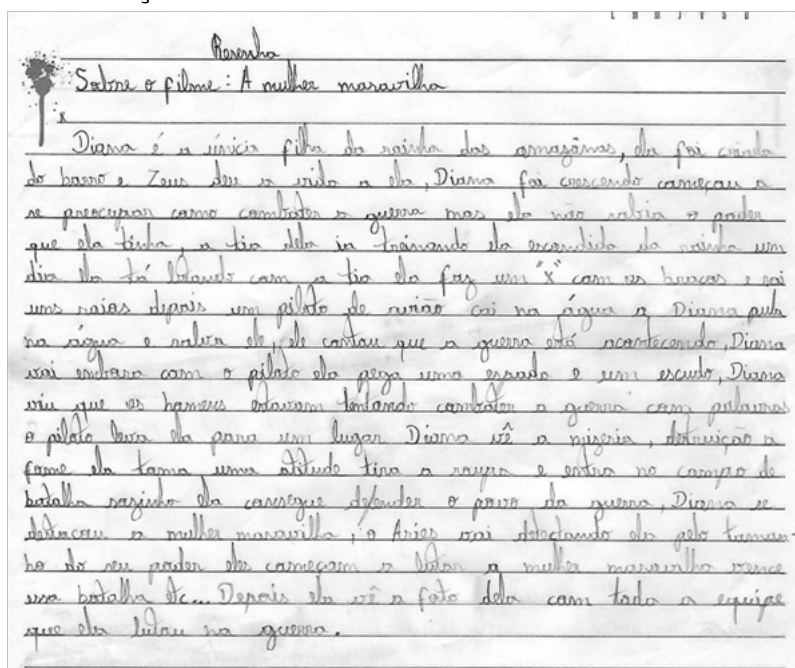 Resenha
Sobre o filme: A mulher maravilha
x
Diana é a únicia filha da rainha das amazonas, ela foi criada
do barro e Zeus deu a vida a ela, Diana foi crescendo começou a
se preocupar como combater a guerra mas ela não sabia o poder
que ela tinha, a tia dela ia treinando ela escondida da rainha um
dia ela tá lutando com a tia ela faz um "x" com os braços e sai
uns raios depois um piloto de avião cai na água a Diana pula
na água e salva ele, ele contou que a guerra está acontecendo, Diana
vai embora com o piloto ela pega uma essada e um escudo, Diana
viu que os homens estavam tentando combater a guerra com palavras
o piloto leva ela para um lugar Diana vê a miseria, detruição a
fome ela toma uma atitude tira a roupa e entra no campo de
batalha sozinho ela consegue defender o povo da guerra, Diana se
destacou a mulher maravilha, o Aries vai detectando ela pelo taman-
ho do seu poder eles começam a lutar a mulher maravilha vence
essa batalha etc... Depois ela vê a foto dela com toda a equipe
que ela lutou na guerra.